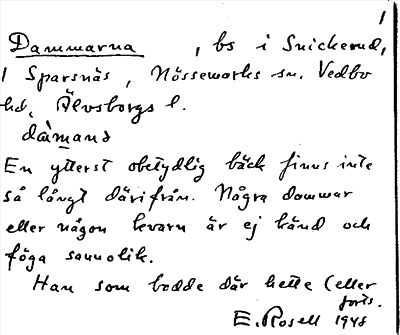 1
Dammarna , bs i Snickerud,
1 Sparsnäs , Nössemarks sn. Vedbo
hd, Älvsborgs l.
dàmand
En ytterst obetydlig bäck finns inte
så långt därifrån. Några dammar
eller någon kvarn är ej känd och
föga sannolik.
Han som bodde där hette (eller
forts.
E. Rosell 1948